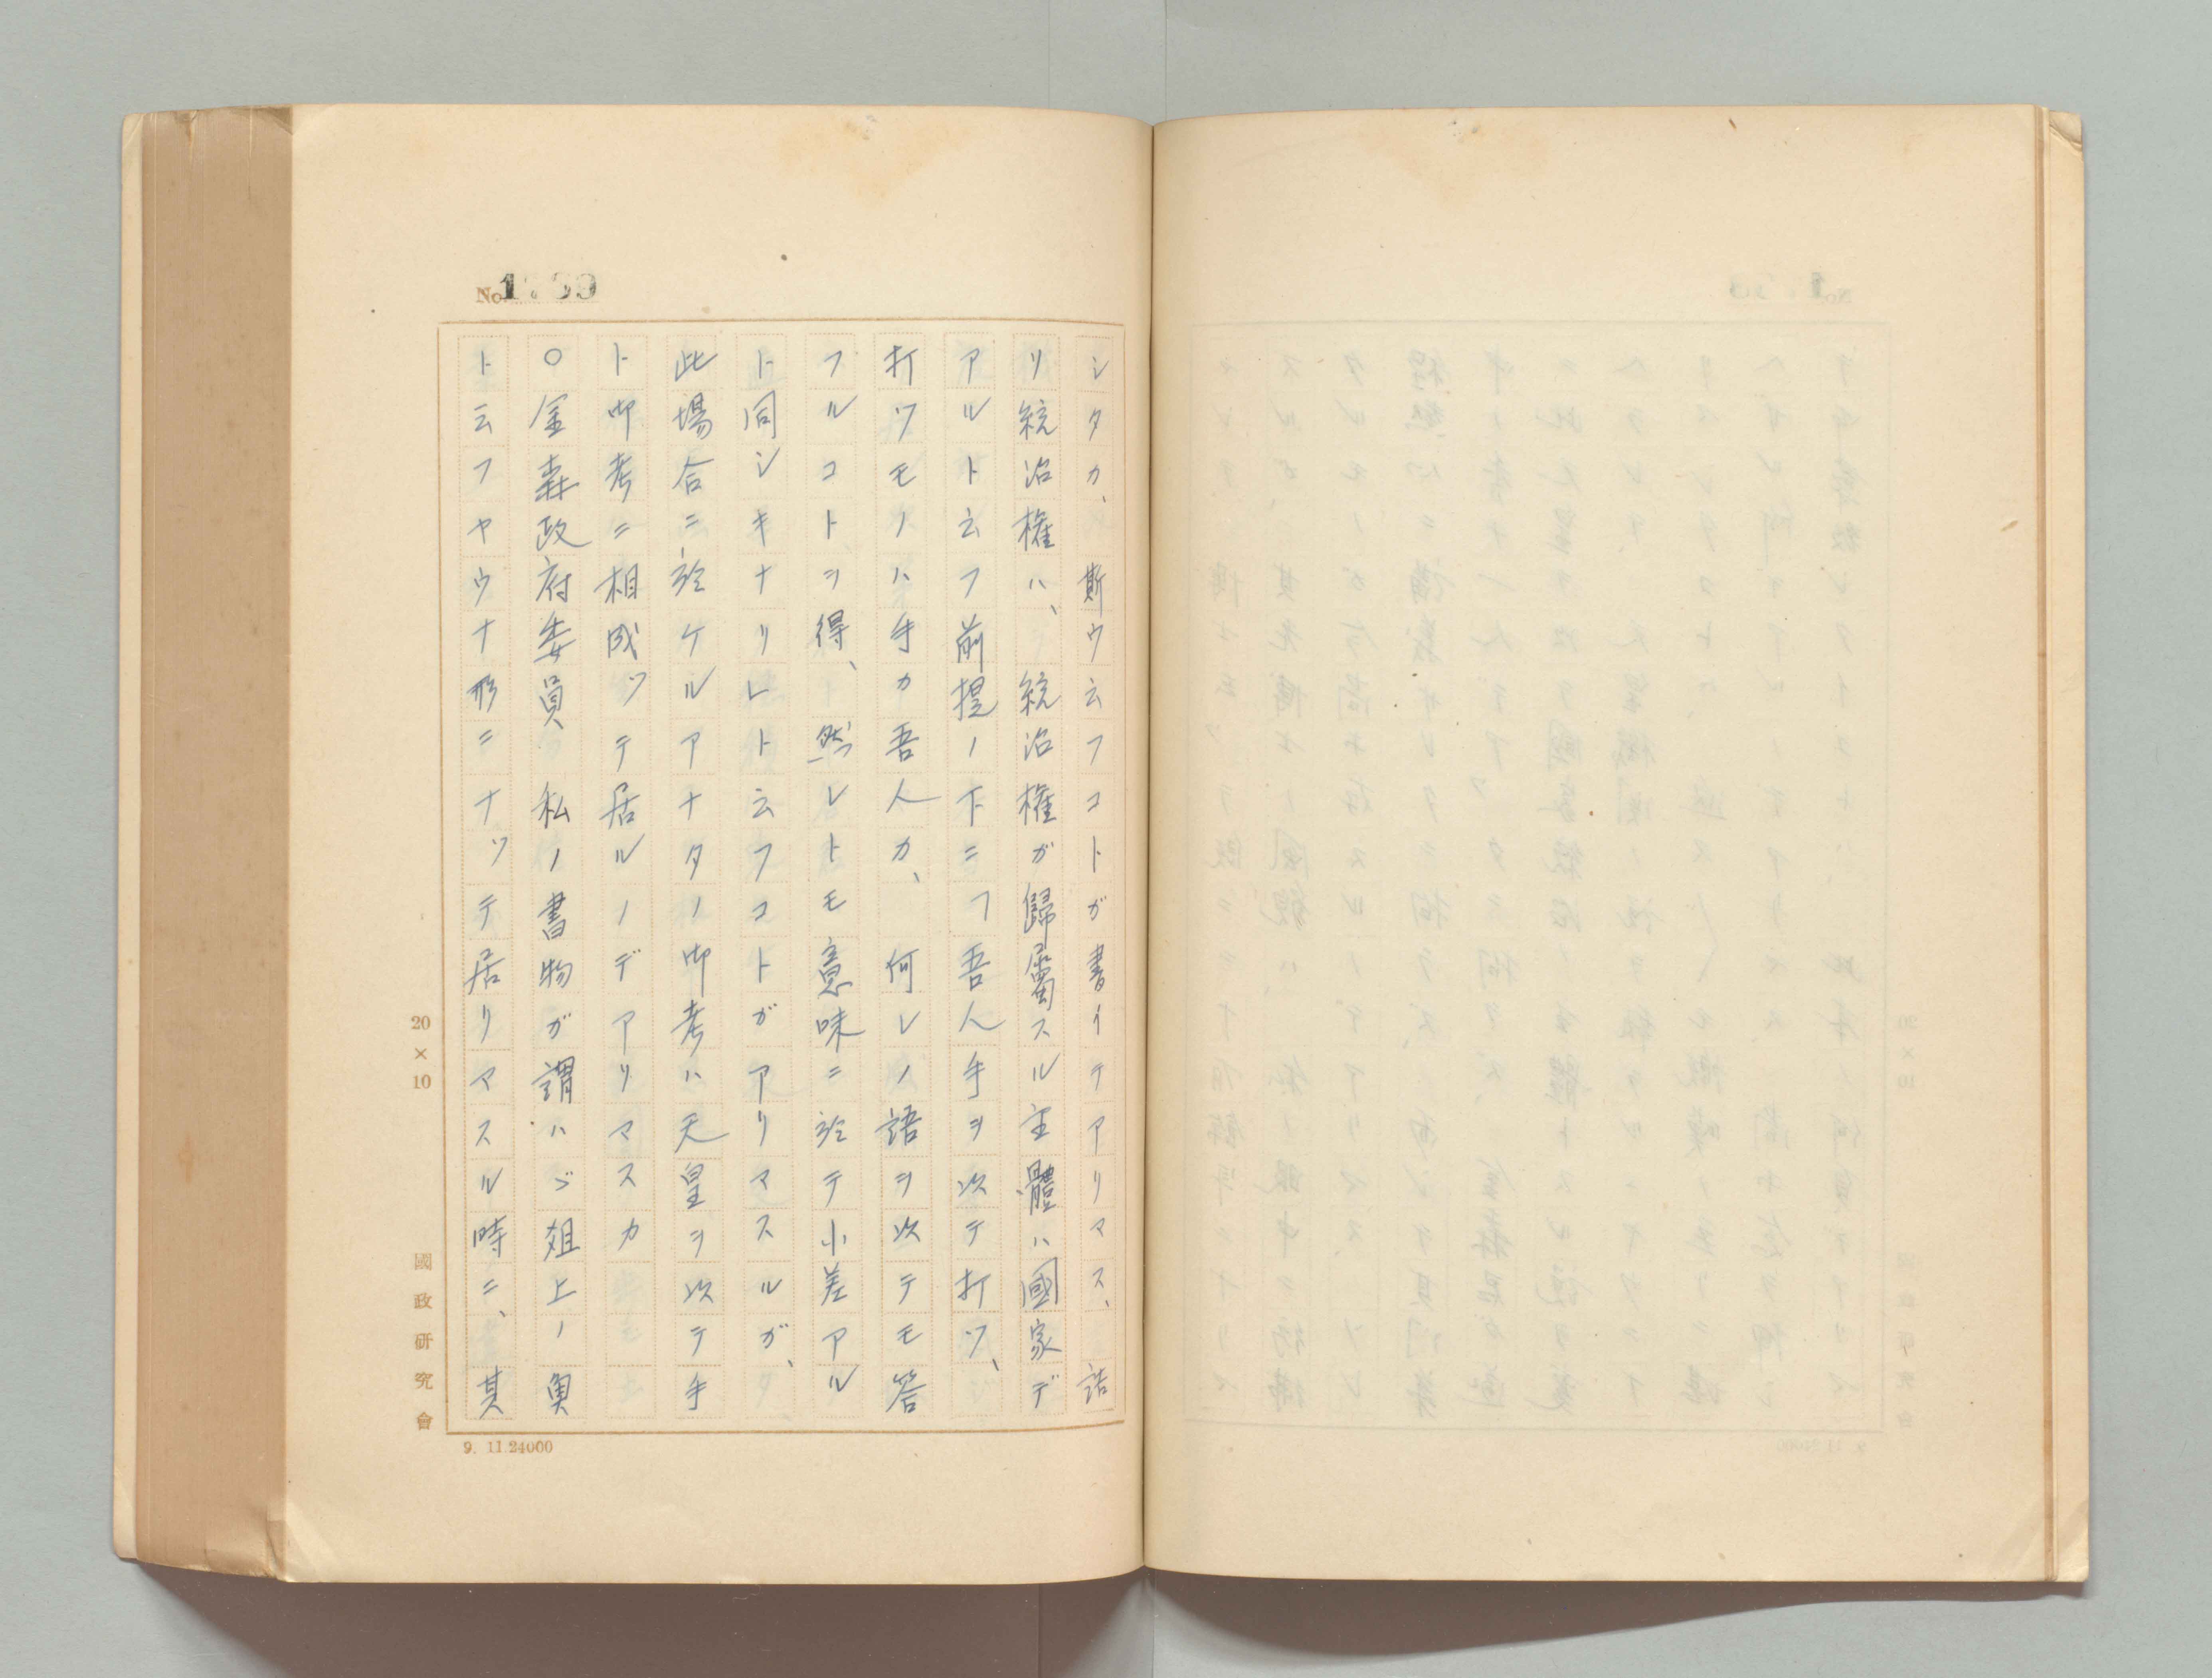 No. 1739
シタカ、斯ウ云フコトガ書イテアリマス、詰
リ統治権ハ、統治権ガ歸屬スル主體ハ國家デ
アルト云フ前提ノ下ニ「吾人手ヲ以テ打ツ、
打ツモノハ手カ吾人カ、何レノ語ヲ以テモ答
フルコトヲ得、然レトモ意味ニ於テ小差アル
ト同シキナリ」ト云フコトガアリマスルガ、
此場合ニ於ケルアナタノ御考ハ天皇ヲ以テ手
ト御考ニ相成ツテ居ルノデアリマスカ
○金森政府委員 私ノ書物ガ謂ハヾ俎上ノ魚
ト云フヤウナ形ニナツテ居リマスル時ニ、其
20×10
國政研究會
9. 11.24000